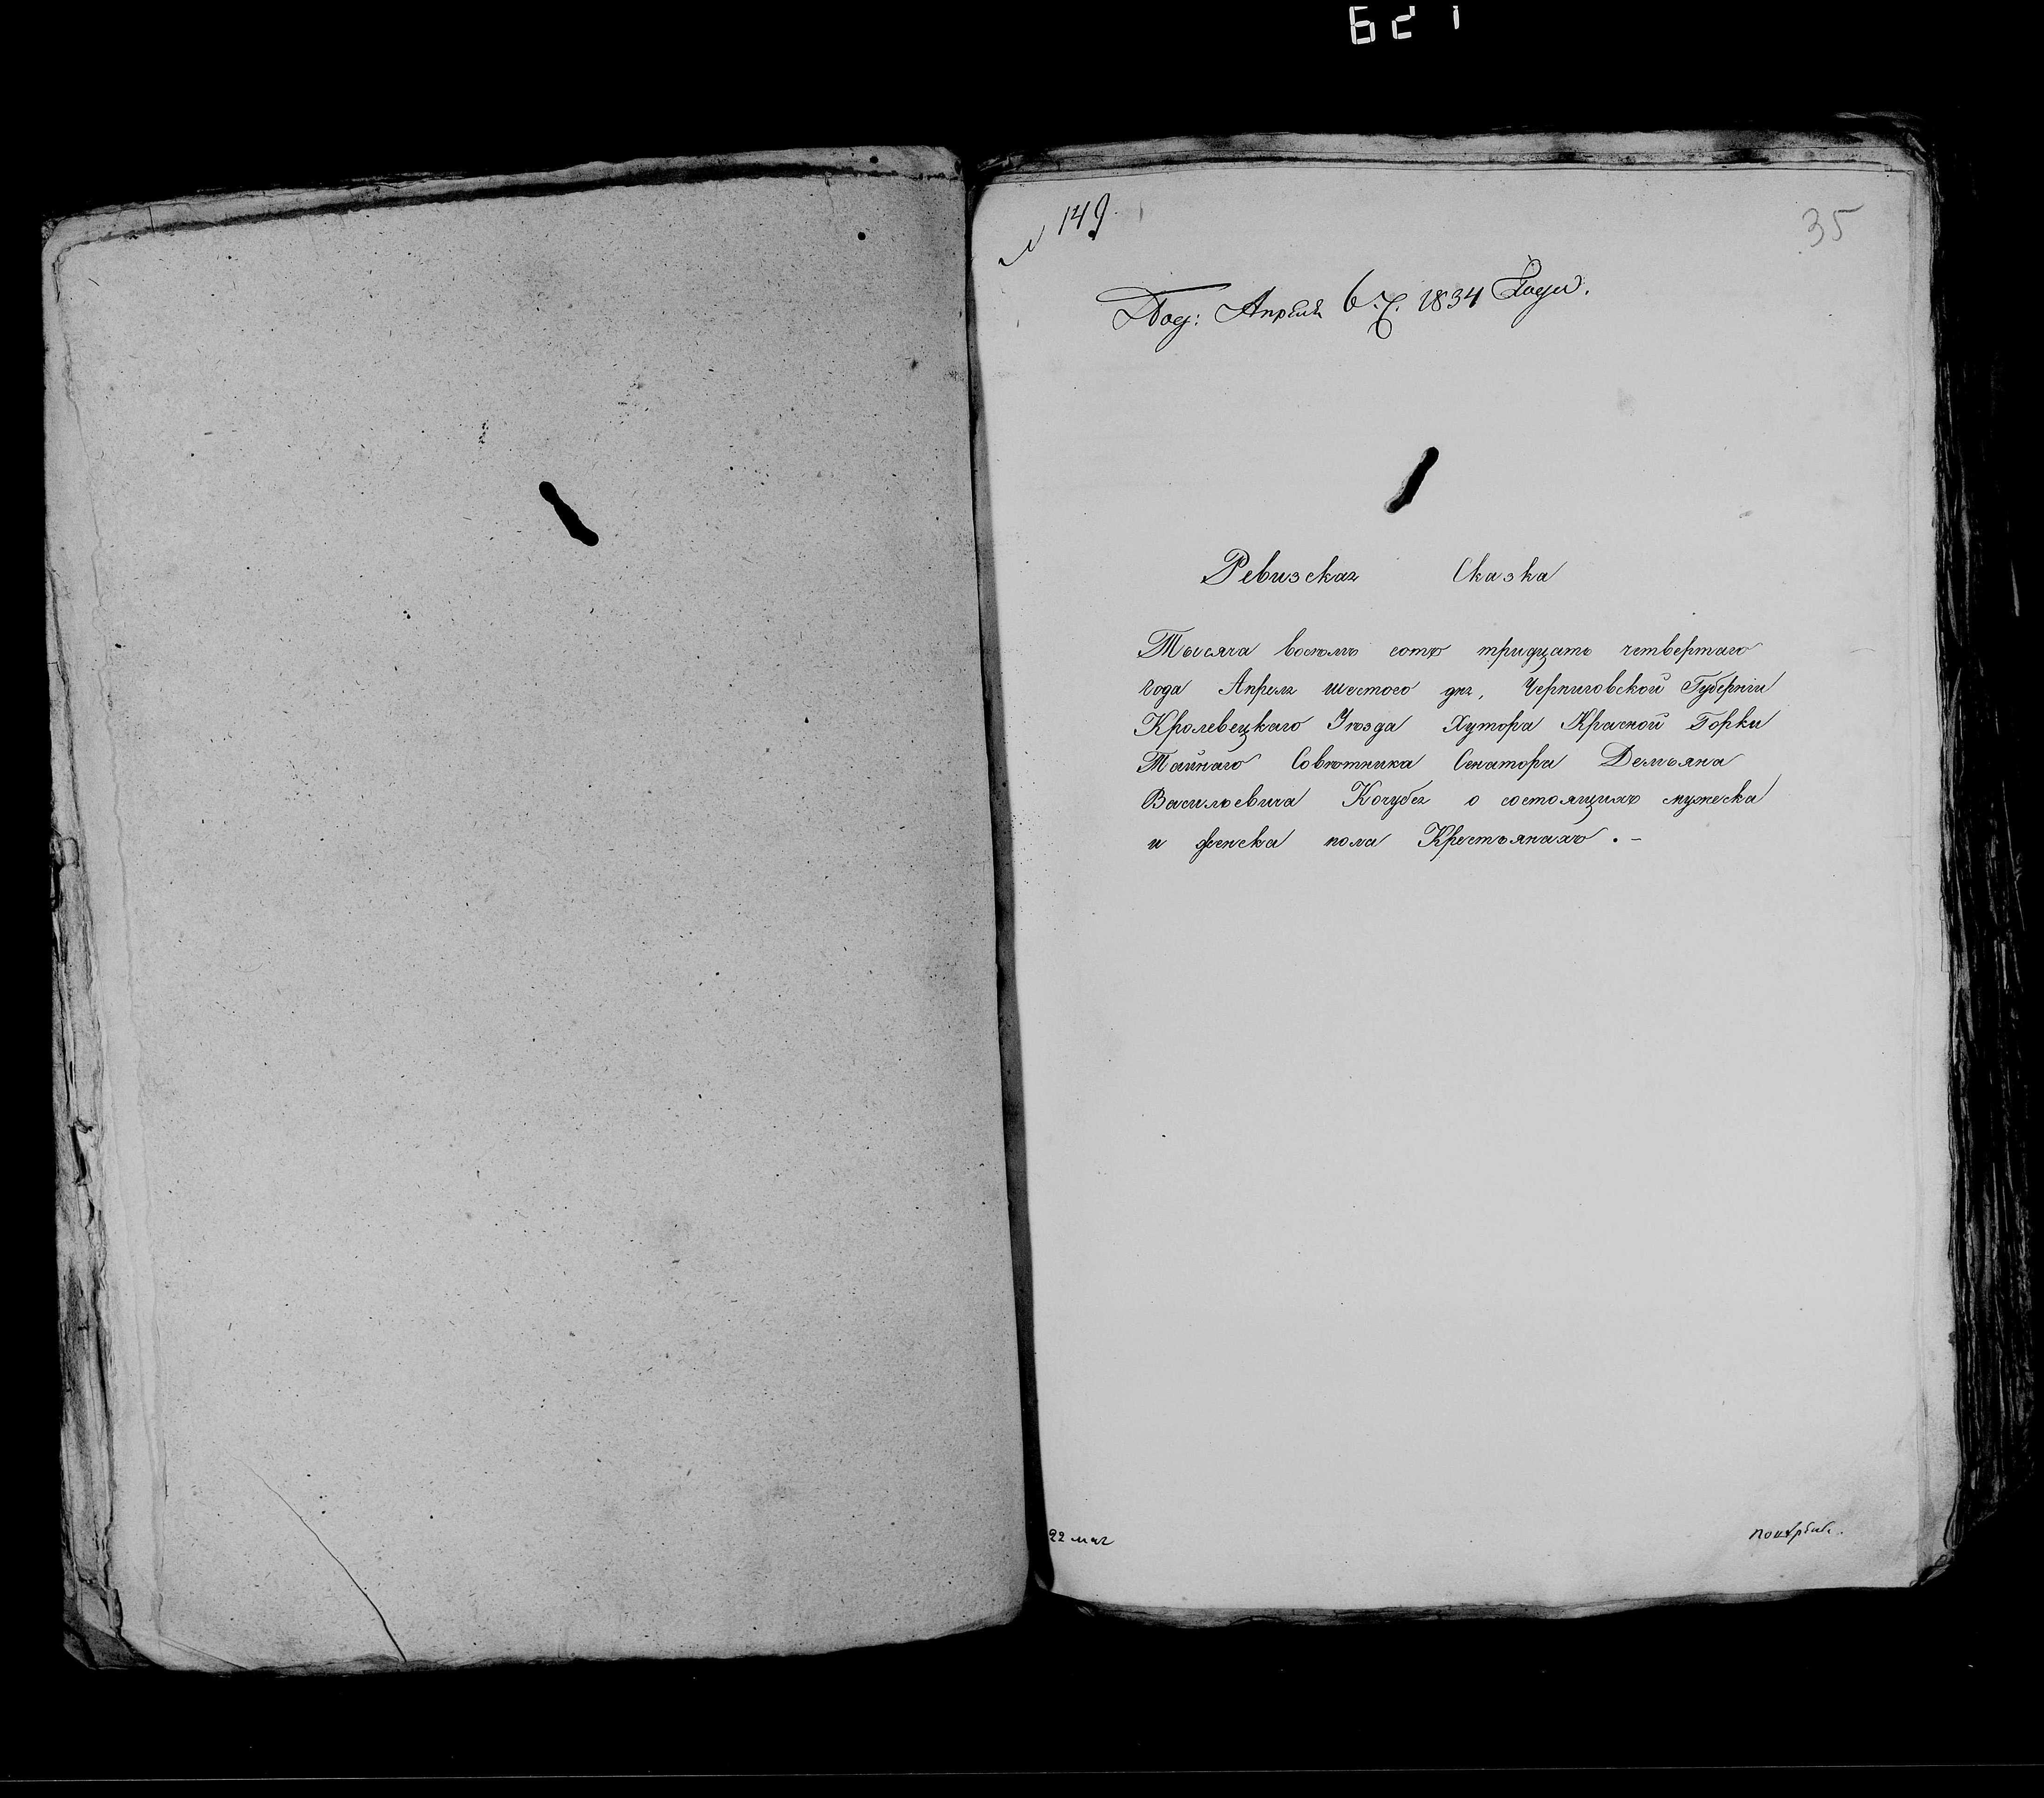 621
№ 149
35
Под: Апреля 6 ч. 1834 Году.
Ревизская Сказка
Тысяча восемь сотъ тридцать четвертаго
года Апреля шестого дня, Черниговской Губерніи
Кролевецкаго Уѣзда Хутора Красной Горки
Тайнаго Совѣтника Сенатора Демьяна
Васильевича Кочубея о состоящихъ мужеска
и женска пола Крестьянахъ . –
22 мая